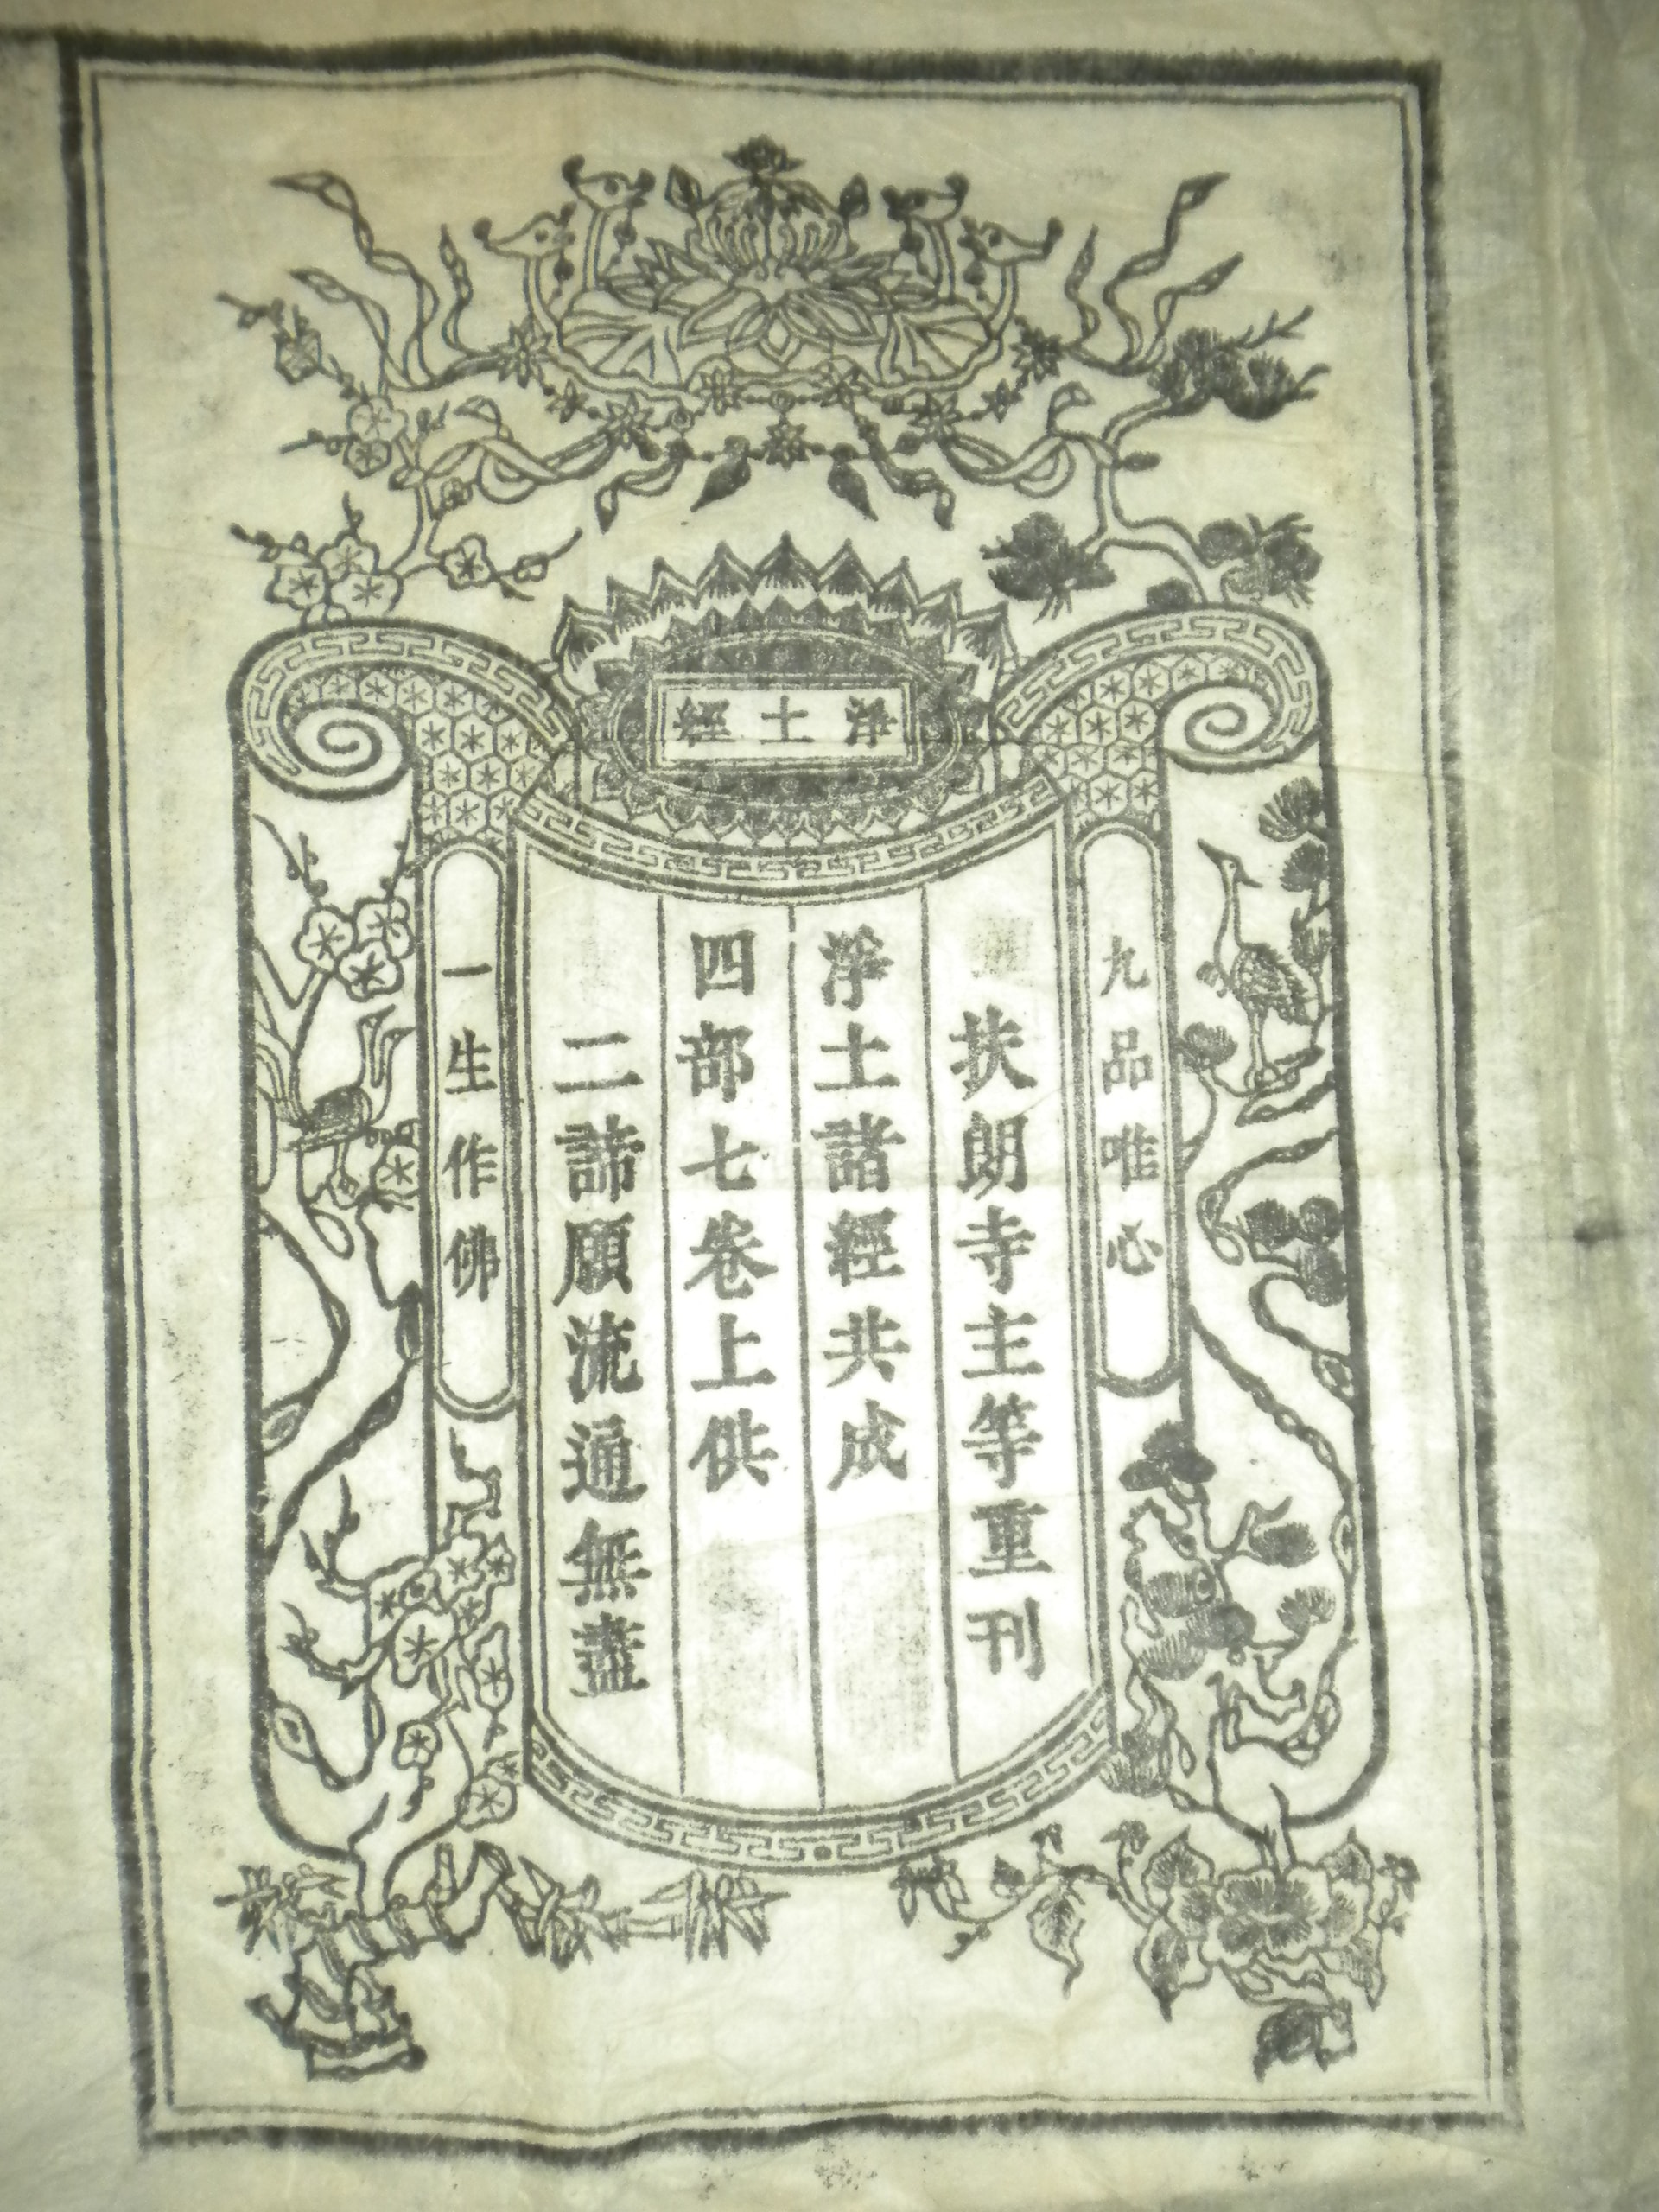 淨土經
九品唯心
扶朗寺主等重刊
淨土諸經共成
四部七卷上供
二諦願流通無盡
一生作佛